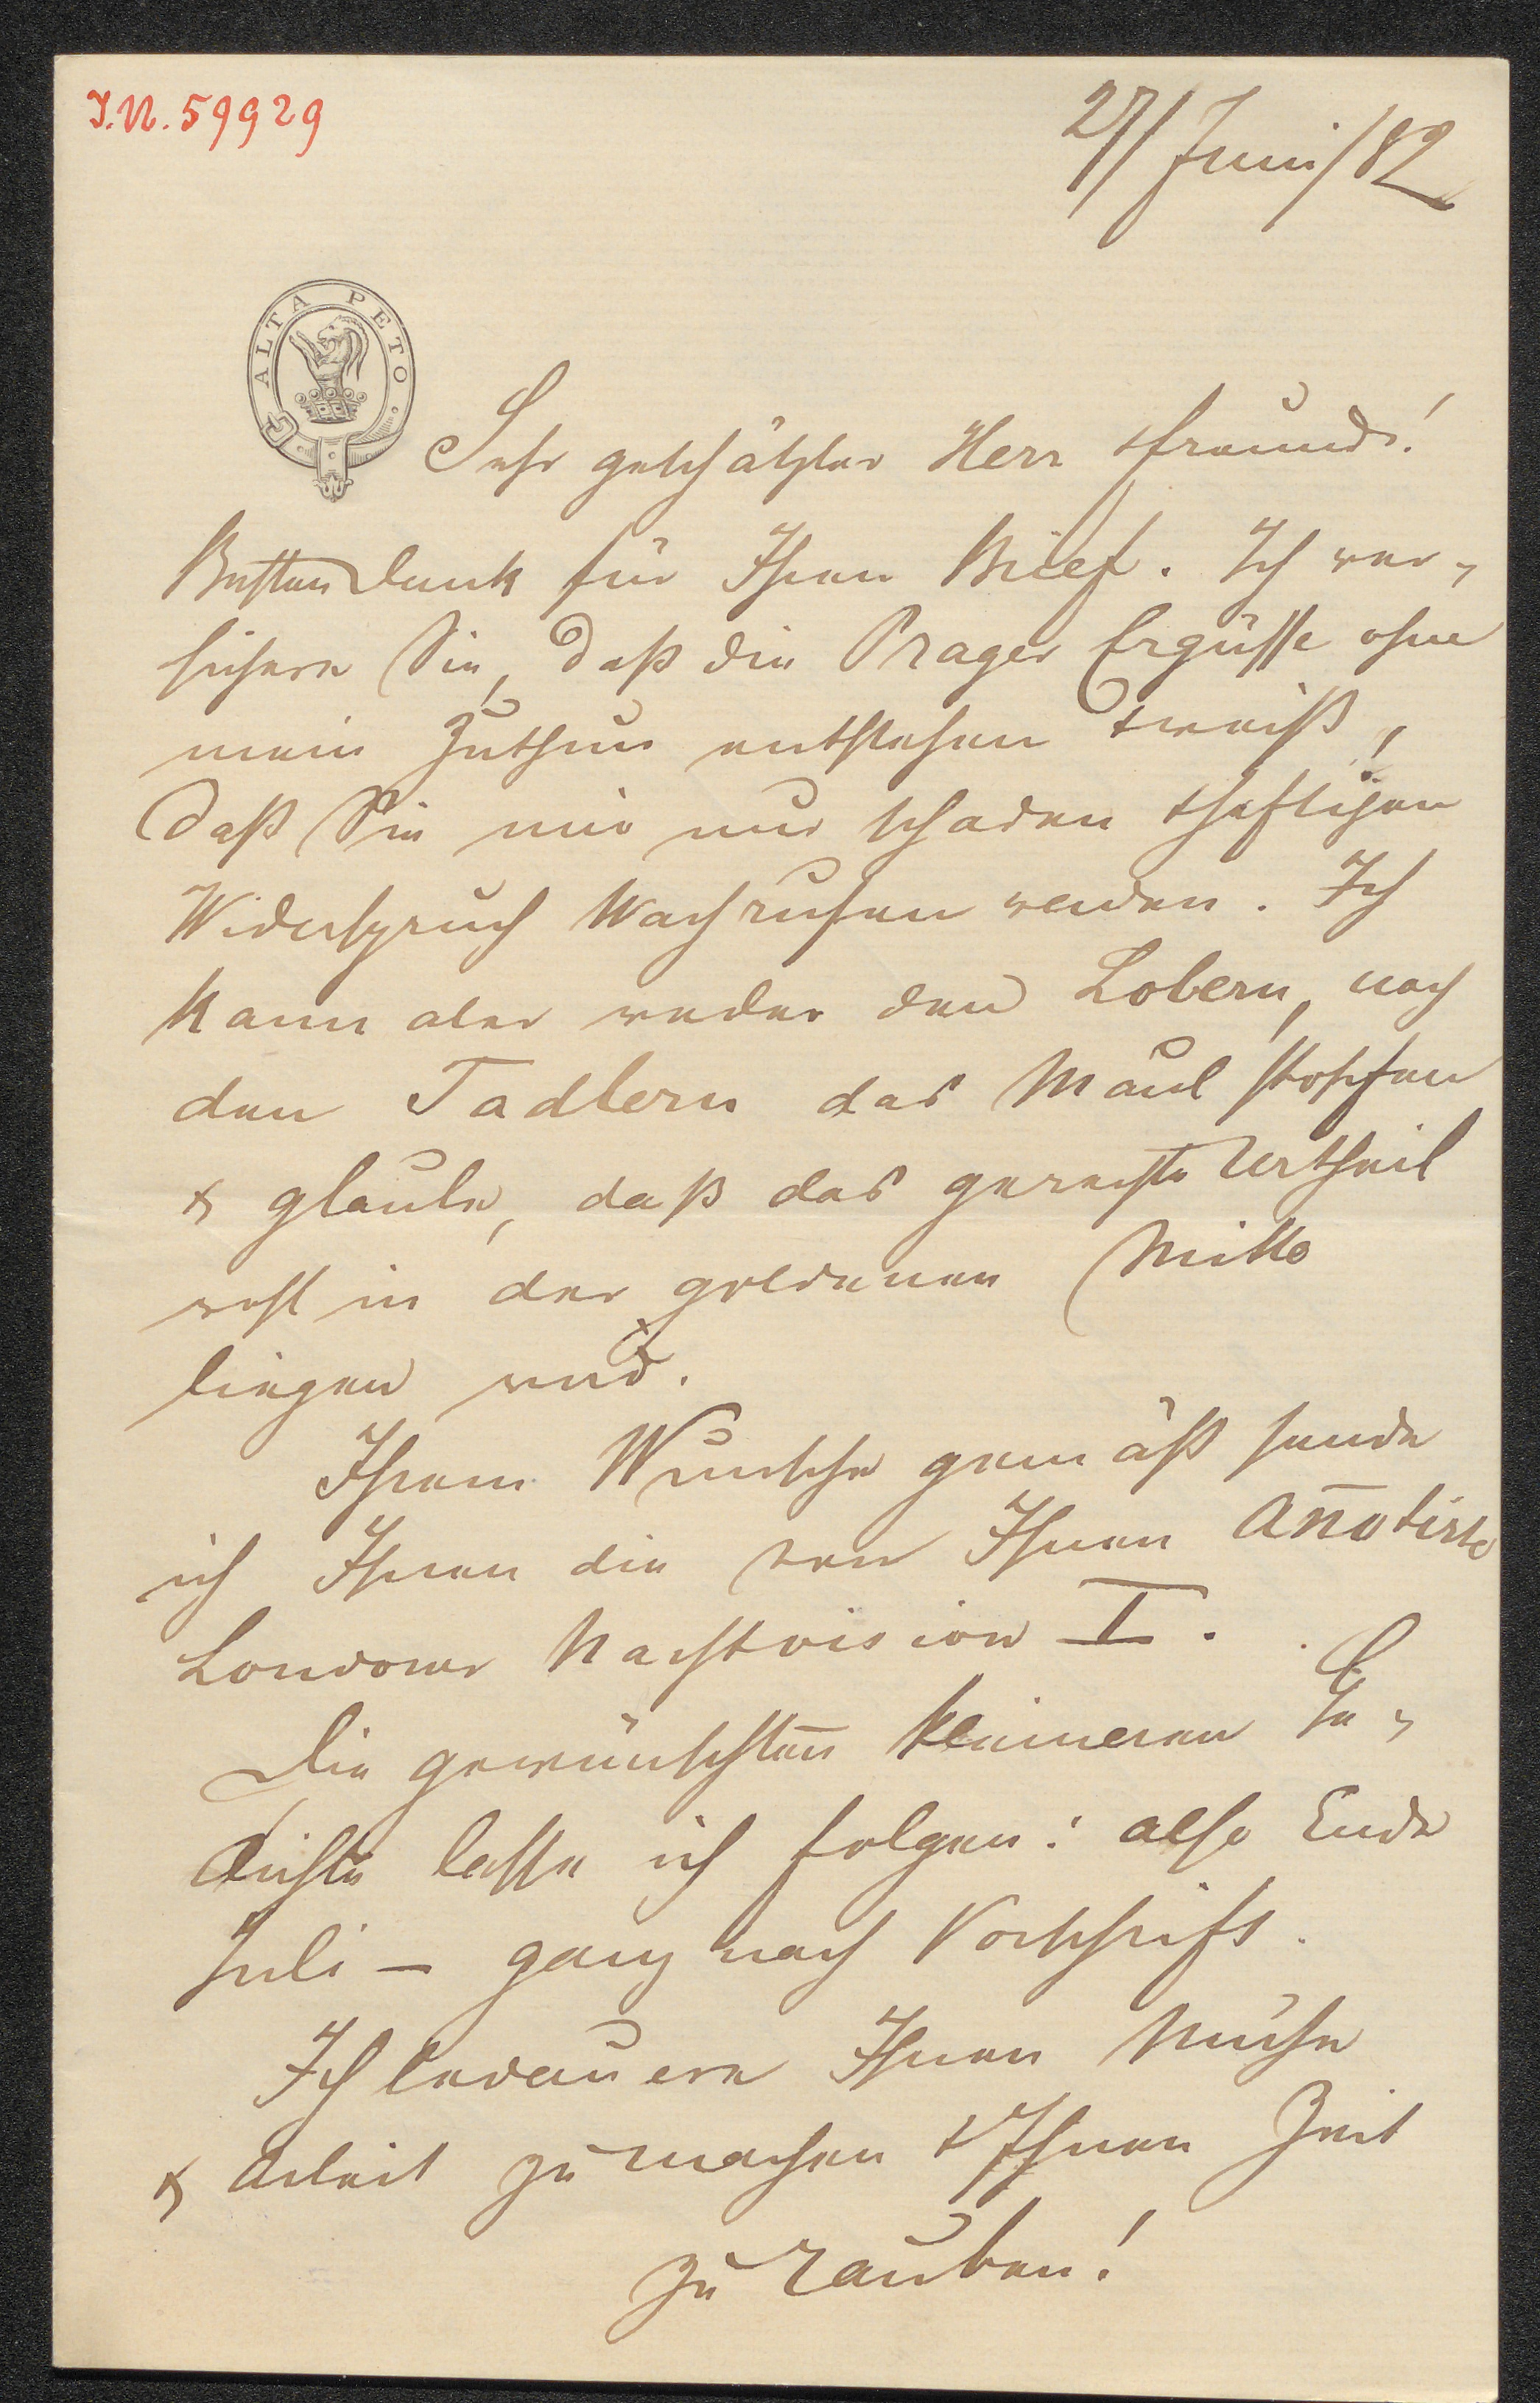 I.N. 59929
27/Juni/82
ALTA PETO
Sehr geschätzter Herr & Freund!
Besten Dank für Ihren Brief. Ich ver-
sichere Sie, daß die Prager Ergüsse ohne
mein Zuthun entstehen & weiß,
daß Sie mir nur schaden & heftigen
Widerspruch wachrufen werden. Ich
kann aber weder den Lobern, noch
den Tadlern das Maul stopfen
& glaube, daß das gerechte Urtheil
wohl in der goldenen Mitte
liegen wird.
Ihrem Wunsche gemäß sende
ich Ihnen die von Ihnen an̄otirte
Londoner Nachtvision I.
Die gewünschten kleineren Ge-
dichte lasse ich folgen: also Ende
Juli – ganz nach Vorschrift.
Ich bedauere Ihnen Mühe
& Arbeit zu machen & Ihnen Zeit
zu rauben!